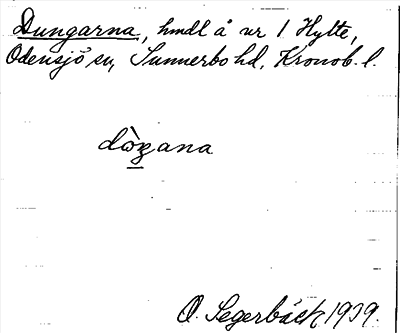 Dungarna, hmdl å nr 1 Hylte,
Odensjö sn, Sunnerbo hd, Kronob. l.
O. Segerbäck 1939.